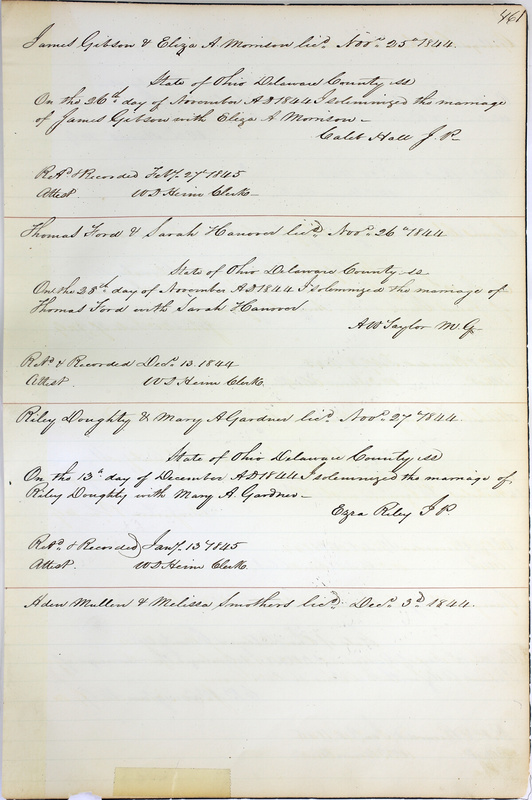 461
James Gibson & Eliza A Morrison licd Novr 25th 1844.
State of Ohio Delaware County ss
On the 26th day of November AD 1844 I solemnized the marriage
of James Gibson with Eliza A Morrison –
Caleb Hall J. P–
Retd & Recorded Feby. 27th 1845
Attest. W D Heim Clerk –
Thomas Ford & Sarah Hanover licd Novr 26th 1844
State of Ohio Delaware County – ss
On the 28th day of November AD 1844 I solemnized the marriage of
Thomas Ford with Sarah Hanover
A W Taylor M. G.
Retd & Recorded Decr 13. 1844
Attest. W D Heim Clerk.
Riley Doughty & Mary A Gardner licd Novr 27th 1844.
State of Ohio Delaware County ss
On the 13th day of December AD 1844 I solemnized the marriage of
Riley Doughty with Mary A. Gardner –
Ezra Riley J P.
Retd & Recorded Jany. 13th 1845
Attest. W D Heim Clerk.
Aden Mullen & Melissa Smothers licd. Decr 3d 1844.